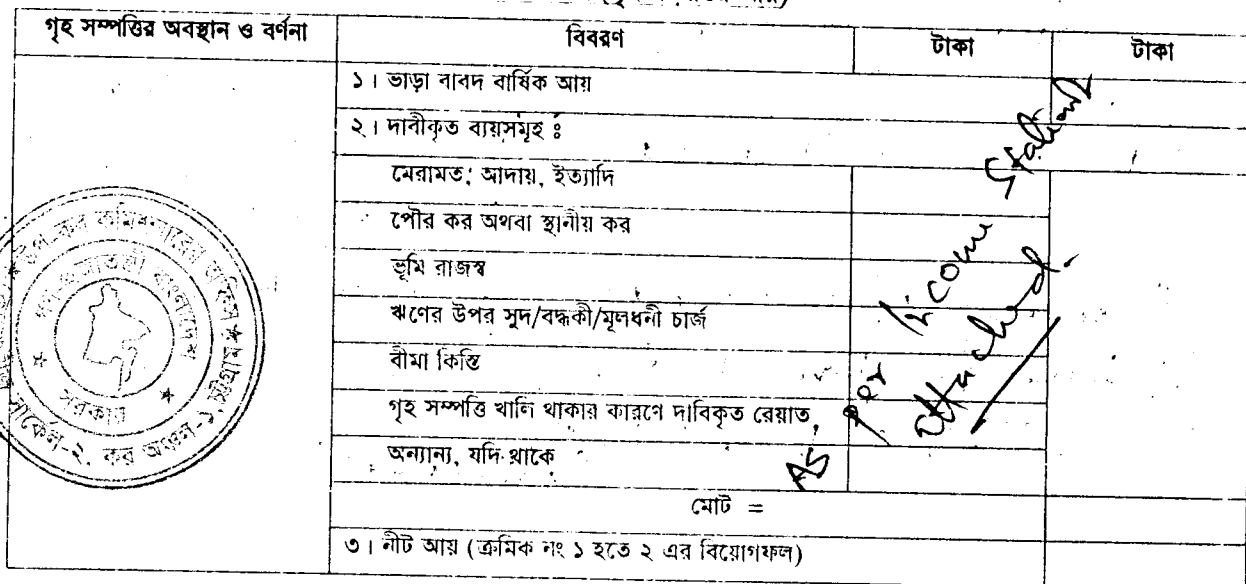 গৃহ সম্পত্তির অবস্থান ও বর্ণনা বিবরণ টাকা টাকা
১। ভাড়া বাবদ বার্ষিক আয়
২। দাবীকৃত ব্যয়সমূহ ঃ
মেরামত, আদায়, ইত্যাদি
পৌর কর অথবা স্থানীয় কর
ভূমি রাজস্ব
ঋণের উপর সুদ/বদ্ধকী/মূলধনী চার্জ
বীমা কিস্তি
গৃহ সম্পত্তি খালি থাকার কারণে দাবিকৃত রেয়াত
অন্যান্য, যদি থাকে
মোট =
৩। নীট আয় (ক্রমিক নং ১ হতে ২ এর বিয়োগফল)
As Per Income
Attached.
উপ কর কমিশনারের
গণপ্রজাতন্ত্রী বাংলাদেশ
সরকার
সার্কেল-২, কর অঞ্চল-১, চট্টগ্রাম